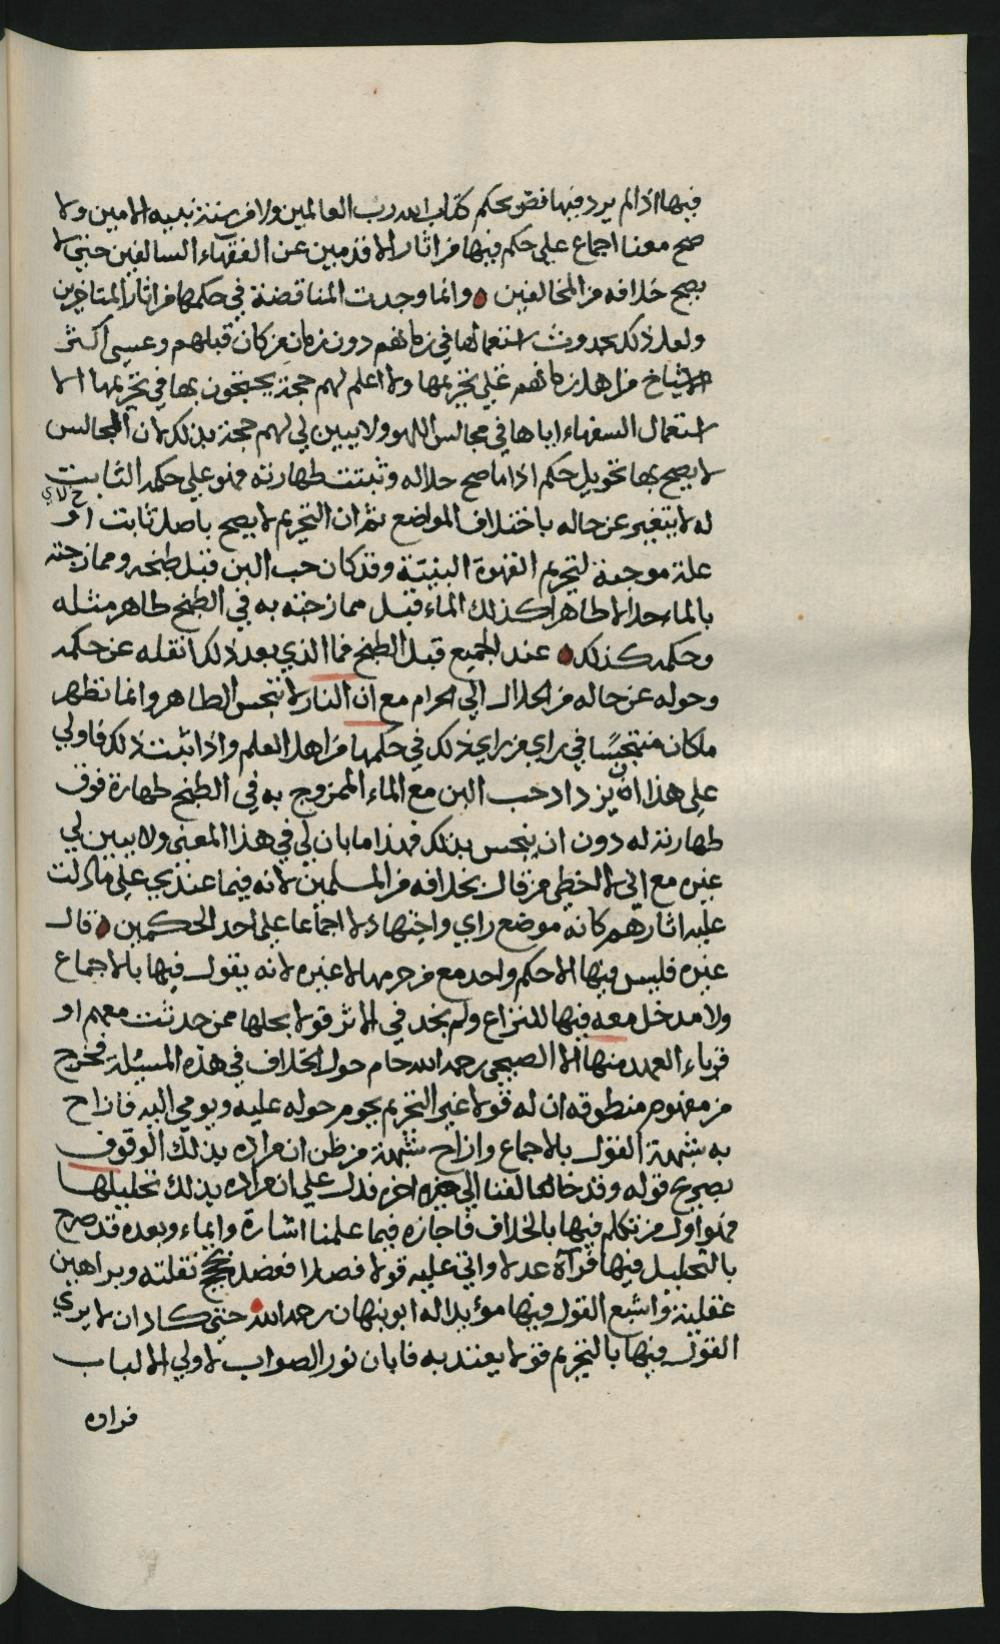 فيها اذا لم يرد فيها نص بحكم كتاب الله رب العالمين ولا من سنة نبيه الامين ولا
صح معنا اجماع على حكم فيها من اثار الاقدمين عن الفقهاء السالفين حتى لا
يصح خلافه من المخالفين وانما وجدت المناقضة في حكمها من اثار المتاخرين
ولعل ذلك بحدوث استعمالها في زمانهم دون زمان من كان قبلهم وعسى اكثر
الاشياخ من اهل زمانهم على تحريمها ولا اعلم لهم حجة يحتجون بها في تحريمها الا
استعمال السفهاء اياها في مجالس اللهو ولا يبين لي لهم حجة بذلك لان المجالس
لا يصح بها تحويل حكم اذا ما صح حلاله وثبتت طهارته فهو على حكمه الثابت
له لا يتغير عن حاله باختلاف المواضع ثم ان التحريم لا يصح باصل ثابت او
علة موجبة لتحريم القهوة البنية وقد كان حب البن قبل طبخه وممازجته
بالماء حلالا طاهرا كذلك الماء قبل ممازجته به في الطبخ طاهر مثله
وحكمه كذلك عند الجميع قبل الطبخ فما الذي بعد ذلك انقله عن حكمه
وحوله عن حاله من الحلال الى الحرام مع ان النار لا تنجس الطاهر وانما تطهر
ما كان متنجسا في راي من راي ذلك في حكمها من اهل العلم واذا ثبت ذلك فاولى
على هذا ان يزداد حب البن مع الماء الممزوج به في الطبخ طهارة فوق
طهارته له دون ان ينجس بذلك فهذا ما بان لي في هذا المعنى ولا يبين لي
غيره مع اني لا اخطي من قال بخلافه من المسلمين لانه فيما عندي على ما دلت
عليه اثارهم كانه موضع راي واجتهاد لا اجماعا على احد الحكمين قال
غيره فليس فيها الا حكم واحد مع من حرمها لا غيره لانه يقول فيها بالاجماع
ولا مدخل معه فيها للنزاع ولم نجد في الاثر قولا بحلها ممن حدثت معهم او
قرباء العهد منها الا الصبحي رحمه الله حام حول الخلاف في هذه المسئلة فخرج
من مفهوم منطوقه ان له قولا غير التحريم يحوم حوله عليه ويومي اليه فازاح
به شبهة القول بالاجماع وازاح شبهة من ظن ان مراده بذلك الوقوف
بصريح قوله وقد خالفنا الى اخره فدل على ان مراده بذلك تحليلها
فهو اول من تكلم فيها بالخلاف فاجازه فيما علمنا اشارة وايماء وبعده قد صرح
بالتحليل فيها فرآه عدلا واتى عليه قولا فصلا بحجج نقلته وبراهين
عقلية واشبع القول فيها مؤيدا له ابو نبهان رحمه الله حتى كاد ان لا يرى
القول فيها بالتحريم قولا يعتد به فابان نور الصواب لاولي الالباب
فراه